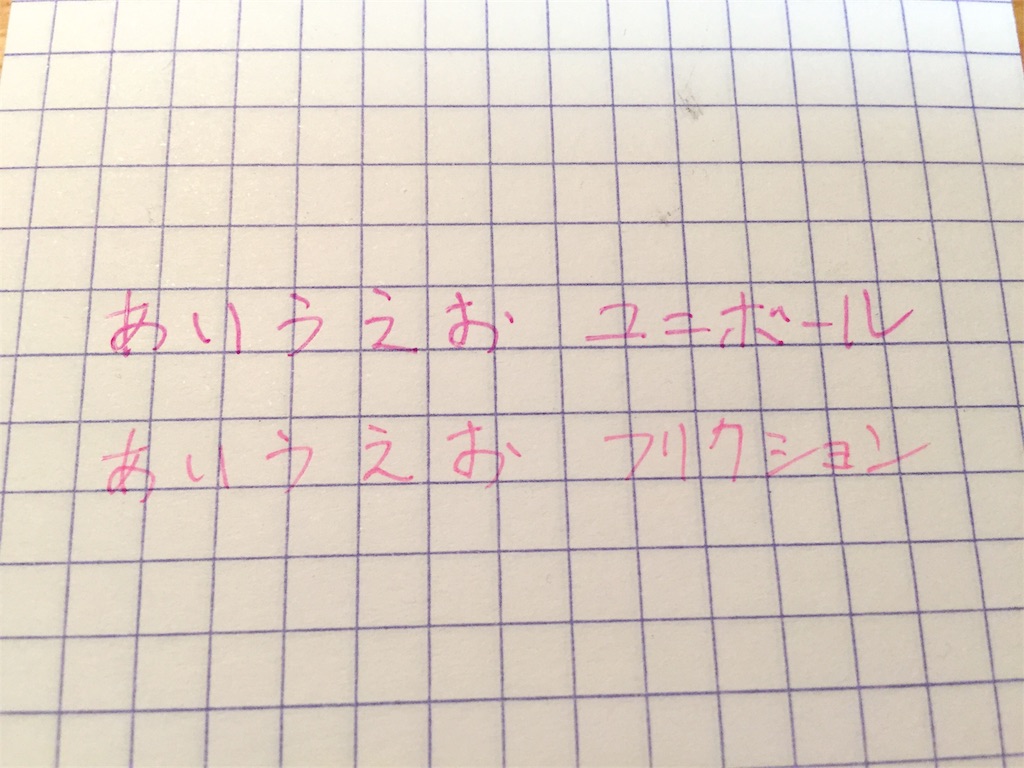 あいうえお ユニボール
あいうえお フリクション